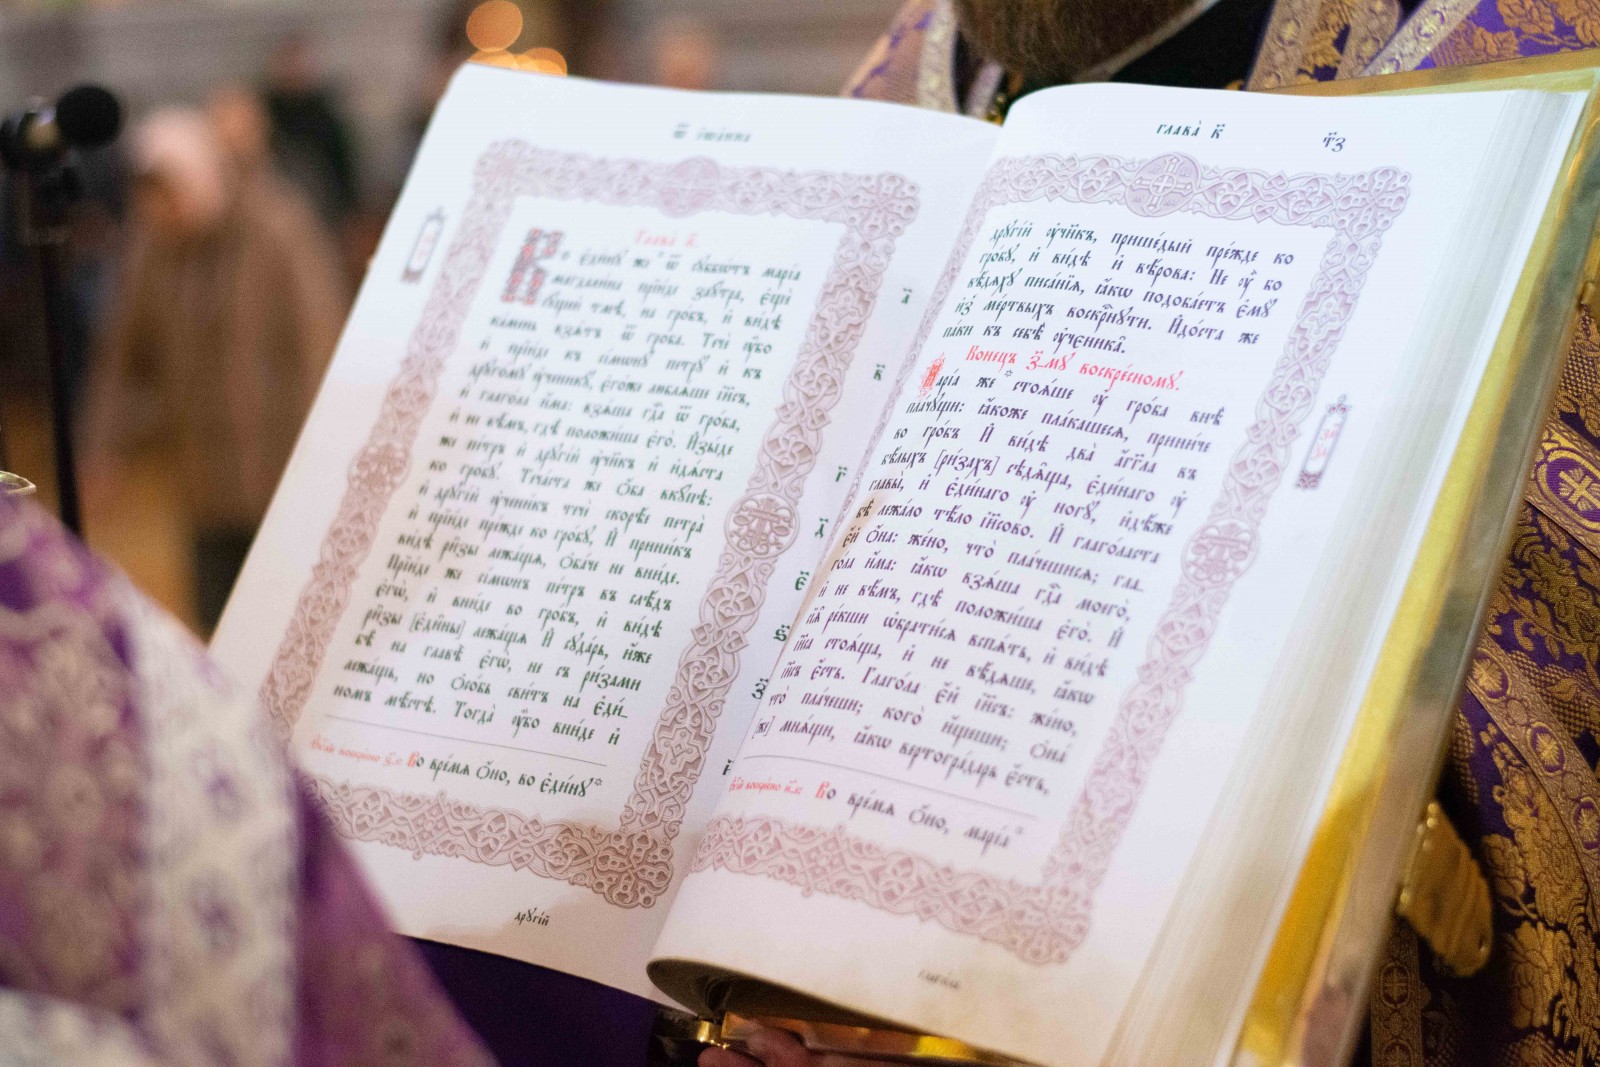 Ѿ іѡа́нна
Глава̀ к҃.
Во є҆ди́нꙋ же * ѿ сꙋббѡ́тъ марі́а
магдали́на прїи́де заꙋ́тра, є҆щѐ
сꙋ́щей тмѣ̀, на гро́бъ, и҆ ви́дѣ
ка́мень взѧ́тъ ѿ гро́ба. Течѐ ᲂу҆̀бо
и҆ прїи́де къ сі́мѡнꙋ петрꙋ̀ и҆ къ
дрꙋго́мꙋ ᲂу҆ченикꙋ̀, є҆го́же люблѧ́ше і҆и҃съ,
и҆ глаго́ла и҆́ма: взѧ́ша гдⷭ҇а ѿ гро́ба,
и҆ не вѣ́мъ, гдѣ̀ положи́ша є҆го̀. И҆зы́де
же пе́тръ и҆ дрꙋгі́й ᲂу҆чн҃къ и҆ и҆дѧ́ста
ко гро́бꙋ. Теча́ста же ѻ҆́ба вкꙋ́пѣ:
и҆ дрꙋгі́й ᲂу҆чени́къ течѐ скорѣ́е петра̀
и҆ прїи́де пре́жде ко гро́бꙋ, И҆ прини́къ
ви́дѣ ри̑зы лежа́щѧ, ѻ҆ба́че не вни́де.
Прїи́де же сі́мѡнъ пе́тръ въ слѣ́дъ
є҆гѡ̀, и҆ вни́де во гро́бъ, и҆ ви́дѣ
ри̑зы [є҆ди̑ны] лежа́щѧ И҆ сꙋда́рь, и҆́же
бѣ̀ на главѣ̀ є҆гѡ̀, не съ ри́зами
лежа́щь, но ѻ҆со́бь сви́тъ на є҆ди́_
номъ мѣ́стѣ. Тогда̀ ᲂу҆̀бо вни́де и҆
Во вре́мѧ ѻ҆́но, во є҆ди́нꙋ*
дрꙋгі́й
а҃
в҃
г҃
д҃
є҃
ѕ҃
глава̀ к҃
т҃з
дрꙋгі́й ᲂу҆чн҃къ, прише́дый пре́жде ко
гро́бꙋ, и҆ ви́дѣ и҆ вѣ́рова: Не ᲂу҆̀ бо
вѣ́дѧхꙋ писа́нїѧ, ꙗ҆́кѡ подоба́етъ є҆мꙋ̀
и҆з̾ ме́ртвыхъ воскрⷭ҇нꙋти. И҆до́ста же
па́ки къ себѣ̀ ᲂу҆ченика̑.
Коне́цъ з҃_мꙋ воскре́сномꙋ.
Марі́а же * стоѧ́ше ᲂу҆ гро́ба внѣ̀
пла́чꙋщи: ꙗ҆́коже пла́кашесѧ, прини́че
во гро́бъ И҆ ви́дѣ два̀ а҆́гг҃ла въ
бѣ́лыхъ [ри́захъ] сѣдѧ̑ща, є҆ди́наго ᲂу҆
главы̀, и҆ є҆ди́наго ᲂу҆ ногꙋ̀, и҆дѣ́же
бѣ̀ лежа́ло тѣ́ло і҆и҃сово. И҆ глаго́ласта
є҆́й ѻ҆́на: же́но, что̀ пла́чешисѧ; гла_
го́ла и҆́ма: ꙗ҆́кѡ взѧ́ша гдⷭ҇а моего̀,
и҆ не вѣ́мъ, гдѣ̀ положи́ша є҆го̀. И҆
сїѧ̑ ре́кши ѡ҆брати́сѧ вспѧ́ть, и҆ ви́дѣ
і҆и҃са стоѧ́ща, и҆ не вѣ́дѧше, ꙗ҆́кѡ
і҆и҃съ є҆́сть. Глаго́ла є҆́й і҆и҃съ: же́но,
что̀ пла́чеши; кого̀ и҆́щеши; ѻ҆на́
[же] мнѧ́щи, ꙗ҆́кѡ вертогра́дарь є҆́сть,
Во вре́мѧ ѻ҆́но, марі́а*
глаго́ла